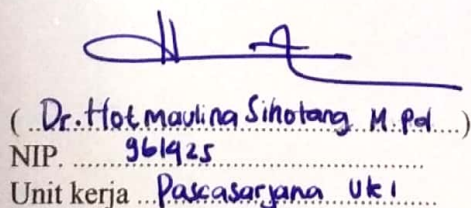 ( Dr. Hotmaulina Sihotang M.Pd )
NIP. 961425
Unit kerja Pascasarjana UKI